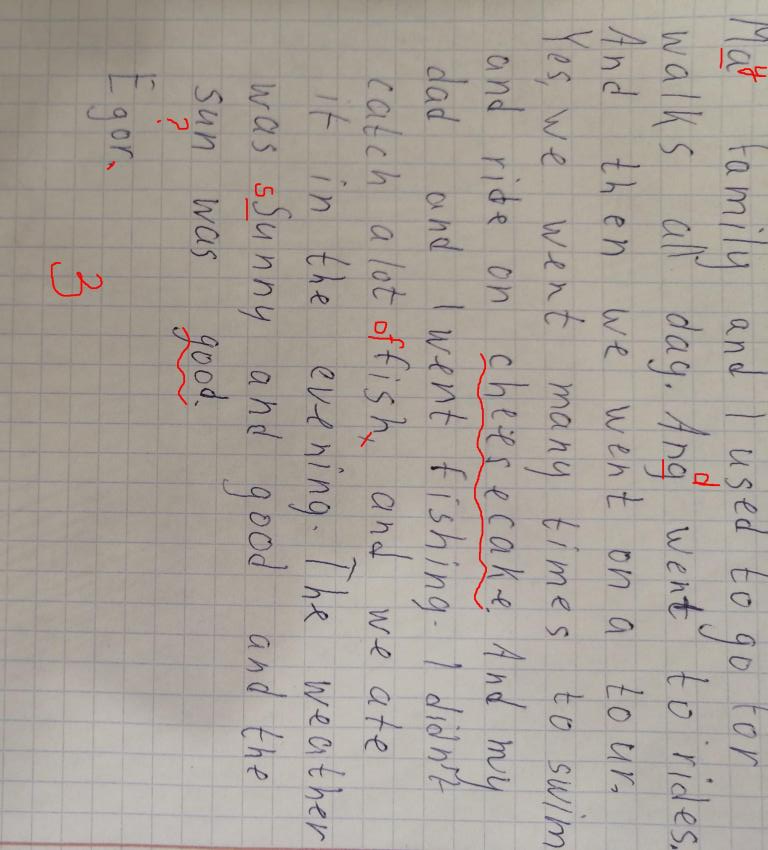 May family and I used to go for
walks all day. Ang d went to rides.
And then we went on a tour.
Yes, we went many times to swim
and ride on cheesecake. And my
dad and I went fishing. I didn't
catch alot of fish, and we ate
it in the evening. The weather
was sSunny and good and the
sun was good.
?
Egor.
3